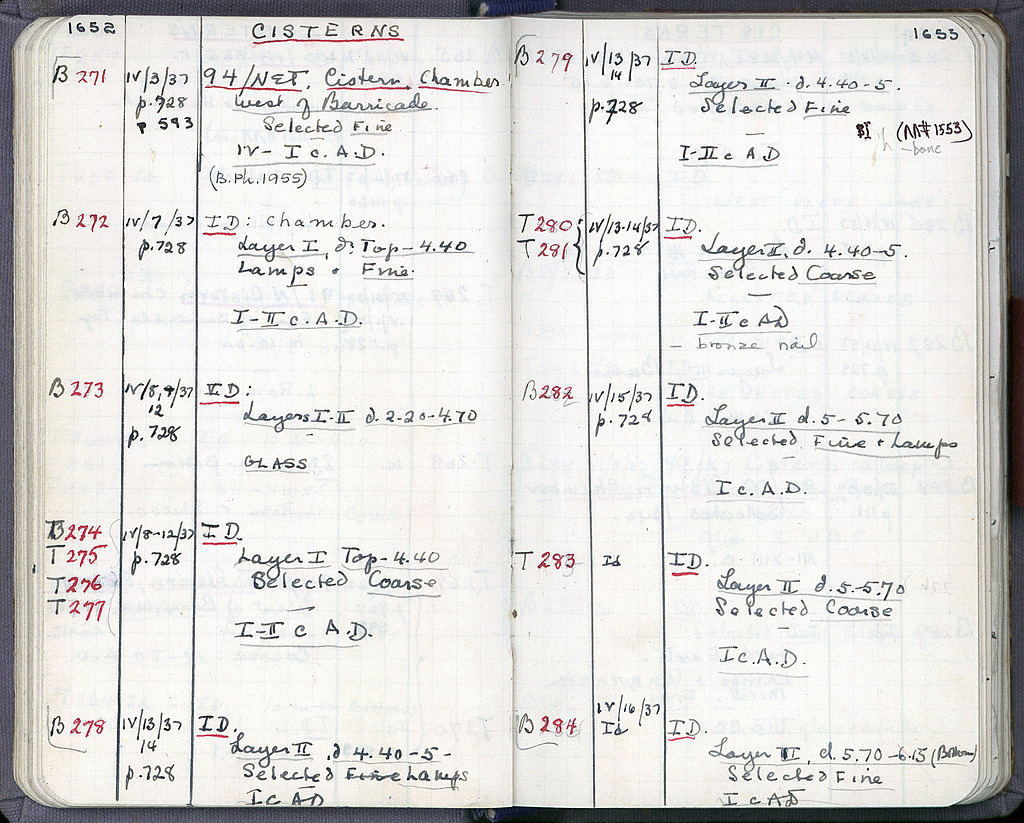 1652
CISTERNS
B 271 IV/3/37 94/NET, Cistern Chamber
p.728 West of Barricade.
p 593 Selected Fine
IV - I c. A.D.
(B.Ph.1955)
B 272 IV/7/37 ID: Chamber.
p.728 Layer I, d. Top - 4.40
Lamps + Fine.
I-II c. A.D.
B 273 IV/8,9/37 ID:
12 Layers I-II d. 2.20-4.70
p.728
GLASS
B 274 IV/8-12/37 ID.
T 275 p.728 Layer I Top-4.40
T 276 Selected Coarse
T 277
I-II c A.D.
B 278 IV/13/37 ID.
14 Layer II, d 4.40-5-
p.728 Selected Fine Lamps
I c AD
1653
B 279 IV/13/37 ID.
14 Layer II. d. 4.40-5.
p.728 Selected Fine
(M# 1553)
- bone
I-II c A.D
T 280 IV/13-14/37 ID.
T 281 p.728 Layer II, d. 4.40-5.
Selected Coarse
I-II c AD
- bronze nail
B 282 IV/15/37 ID.
p.728 Layer II d. 5 - 5.70
Selected Fine + Lamps
I c. A.D.
T 283 Id ID.
Layer II d. 5.-5.70
Selected Coarse
I c. A.D.
IV/16/37
B 284 Id ID.
Layer II, d. 5.70-6.15 (Bottom)
Selected Fine
I c AD